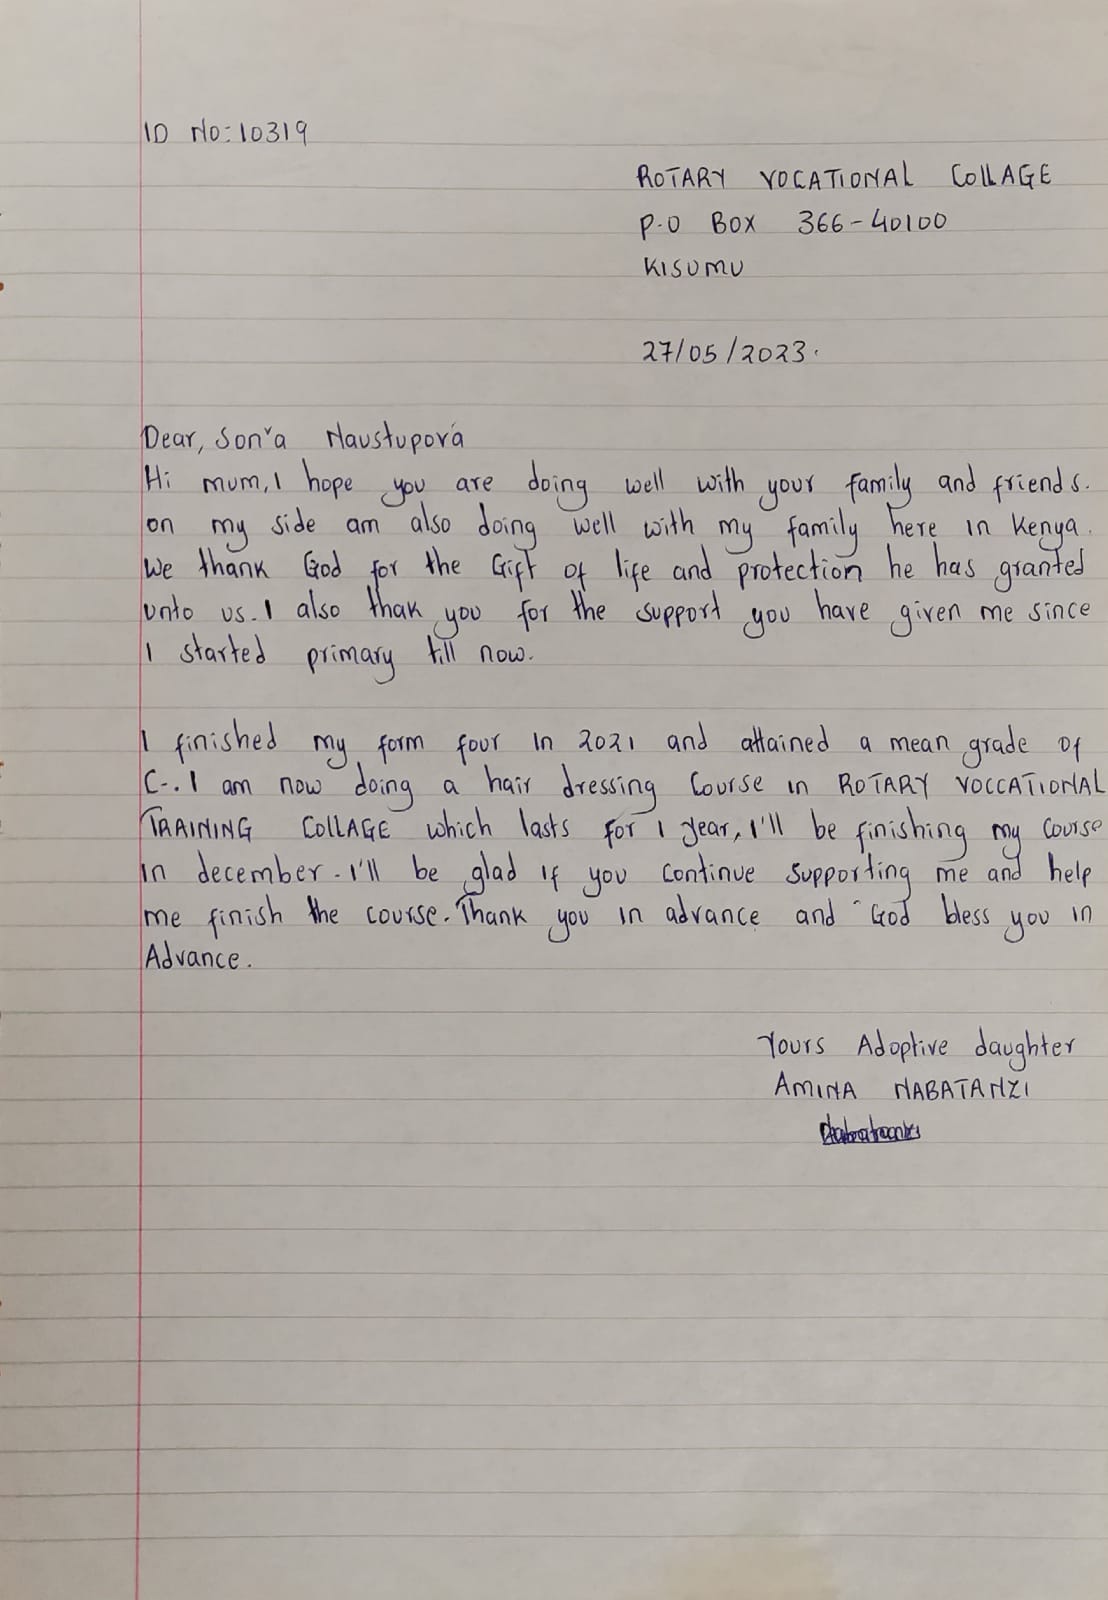 ID No: 10319
ROTARY VOCATIONAL COllAGE
P.O BOX 366-40100
KISUMU
27/05/2023.
Dear, Son'a Naustupová
Hi mum, I hope you are doing well with your family and friends.
on my side am also doing well with my family here in Kenya.
We thank God for the Gift of life and protection he has granted
unto us. I also thak you for the support you have given me since
I started primary till now.
I finished my form four in 2021 and attained a mean grade of
C-. I am now doing a hair dressing Course in ROTARY VOCCATIONAL
TRAINING COllAGE which lasts for 1 year, I'll be finishing my Course
in december. I'll be glad if you continue supporting me and help
me finish the course. Thank you in advance and God bless you in
Advance.
Yours Adoptive daughter
AMINA NABATANZI